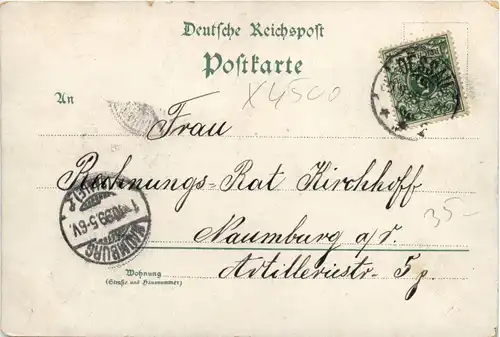 Deutsche Reichspost
Postkarte
X4500
An
Frau
Rechnungs-Rat Kirchhoff
35-
Naumburg a/S.
Artilleriestr. 5
Wohnung
(Straße und Hausnummer)
NAUMBURG
5-6V.
DESSAU